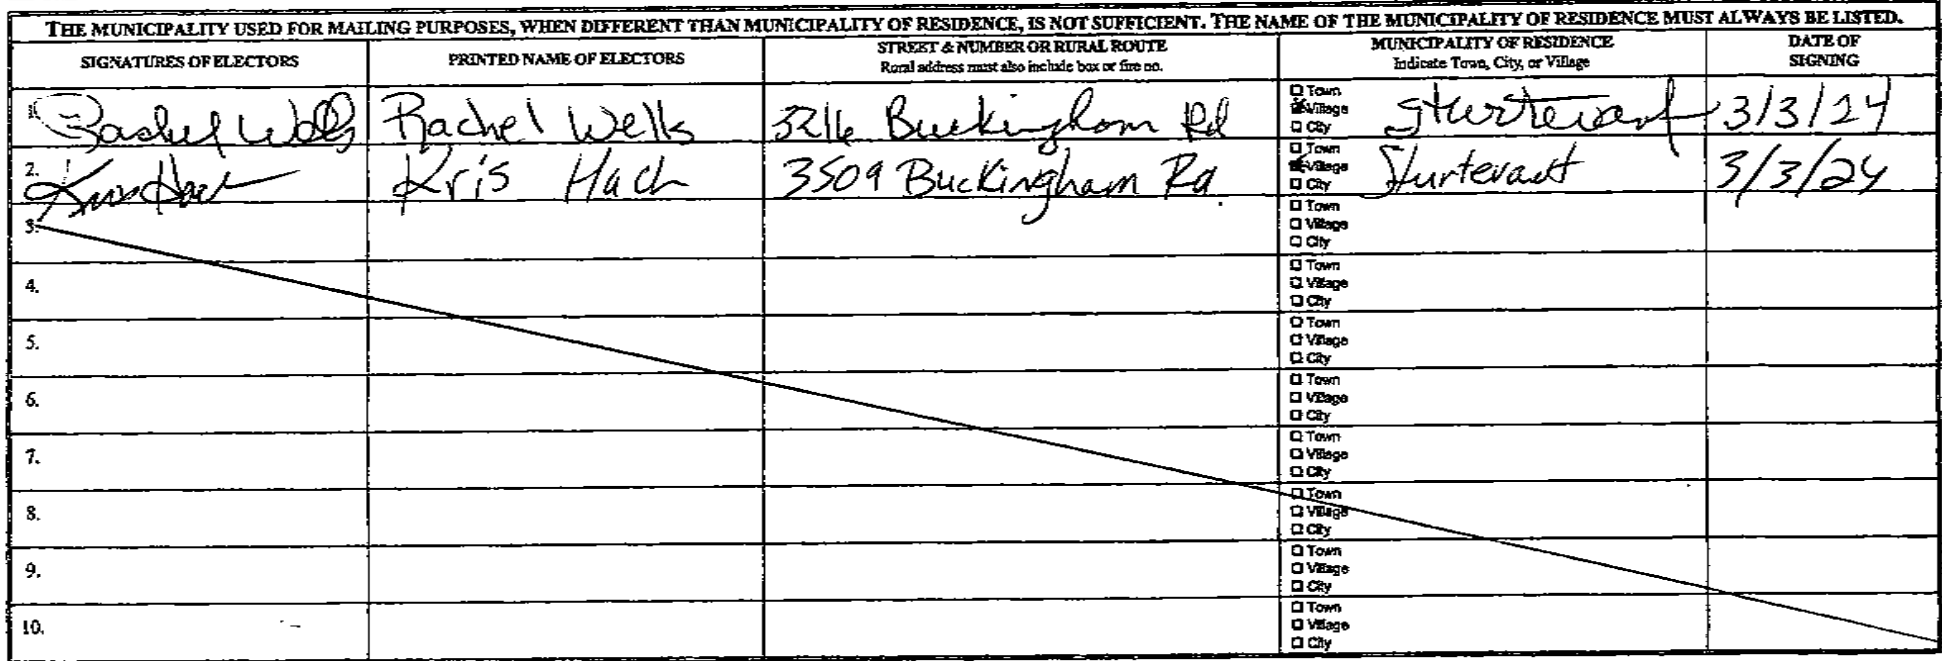 THE MUNICIPALITY USED FOR MAILING PURPOSES, WHEN DIFFERENT THAN MUNICIPALITY OF RESIDENCE, IS NOT SUFFICIENT. THE NAME OF THE MUNICIPALITY OF RESIDENCE MUST ALWAYS BE LISTED.
SIGNATURES OF ELECTORS
PRINTED NAME OF ELECTORS
STREET & NUMBER OR RURAL ROUTE
Rural address must also include box or fire no.
MUNICIPALITY OF RESIDENCE
Indicate Town, City, or Village
DATE OF
SIGNING
1. Rachel Wells Rachel Wells 3216 Buckingham Rd
Town
Village
City
Sturtevant 3/3/24
2. Kris Hach Kris Hach 3509 Buckingham Rd
Town
Village
City
Sturtevant 3/3/24
3.
Town
Village
City
4.
Town
Village
City
5.
Town
Village
City
6.
Town
Village
City
7.
Town
Village
City
8.
Town
Village
City
9.
Town
Village
City
10.
Town
Village
City